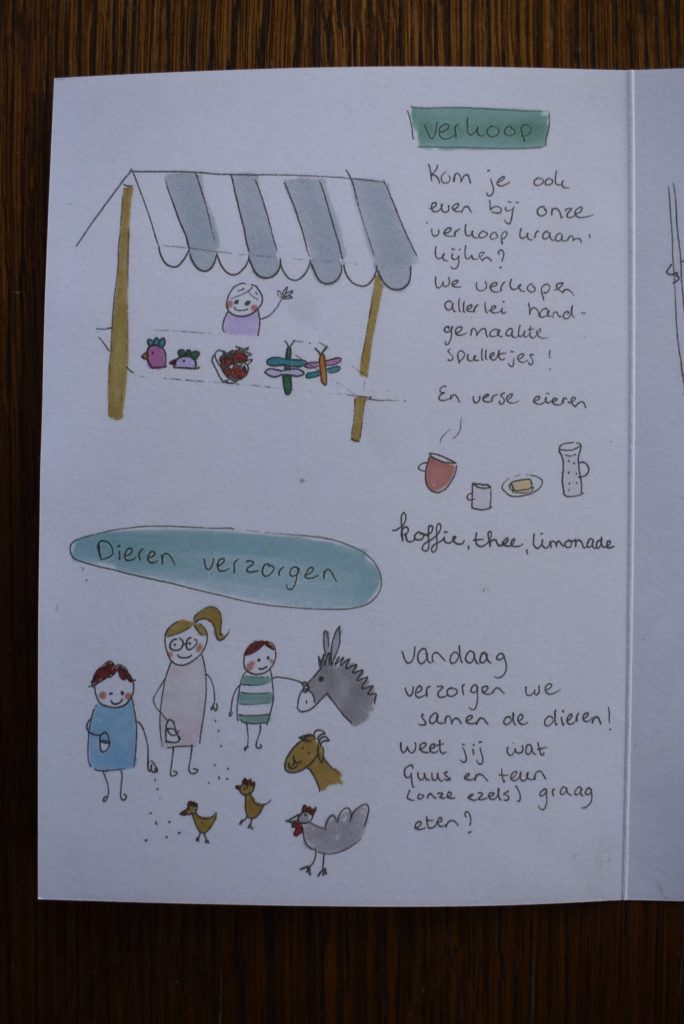 verkoop
Kom je ook
even bij onze
'verkoop kraam'
kijken?
We verkopen
allerlei hand-
gemaakte
spulletjes!
En verse eieren
koffie, thee, limonade
Dieren verzorgen
Vandaag
verzorgen we
samen de dieren!
Weet jij wat
Guus en teun
(onze ezels) graag
eten?